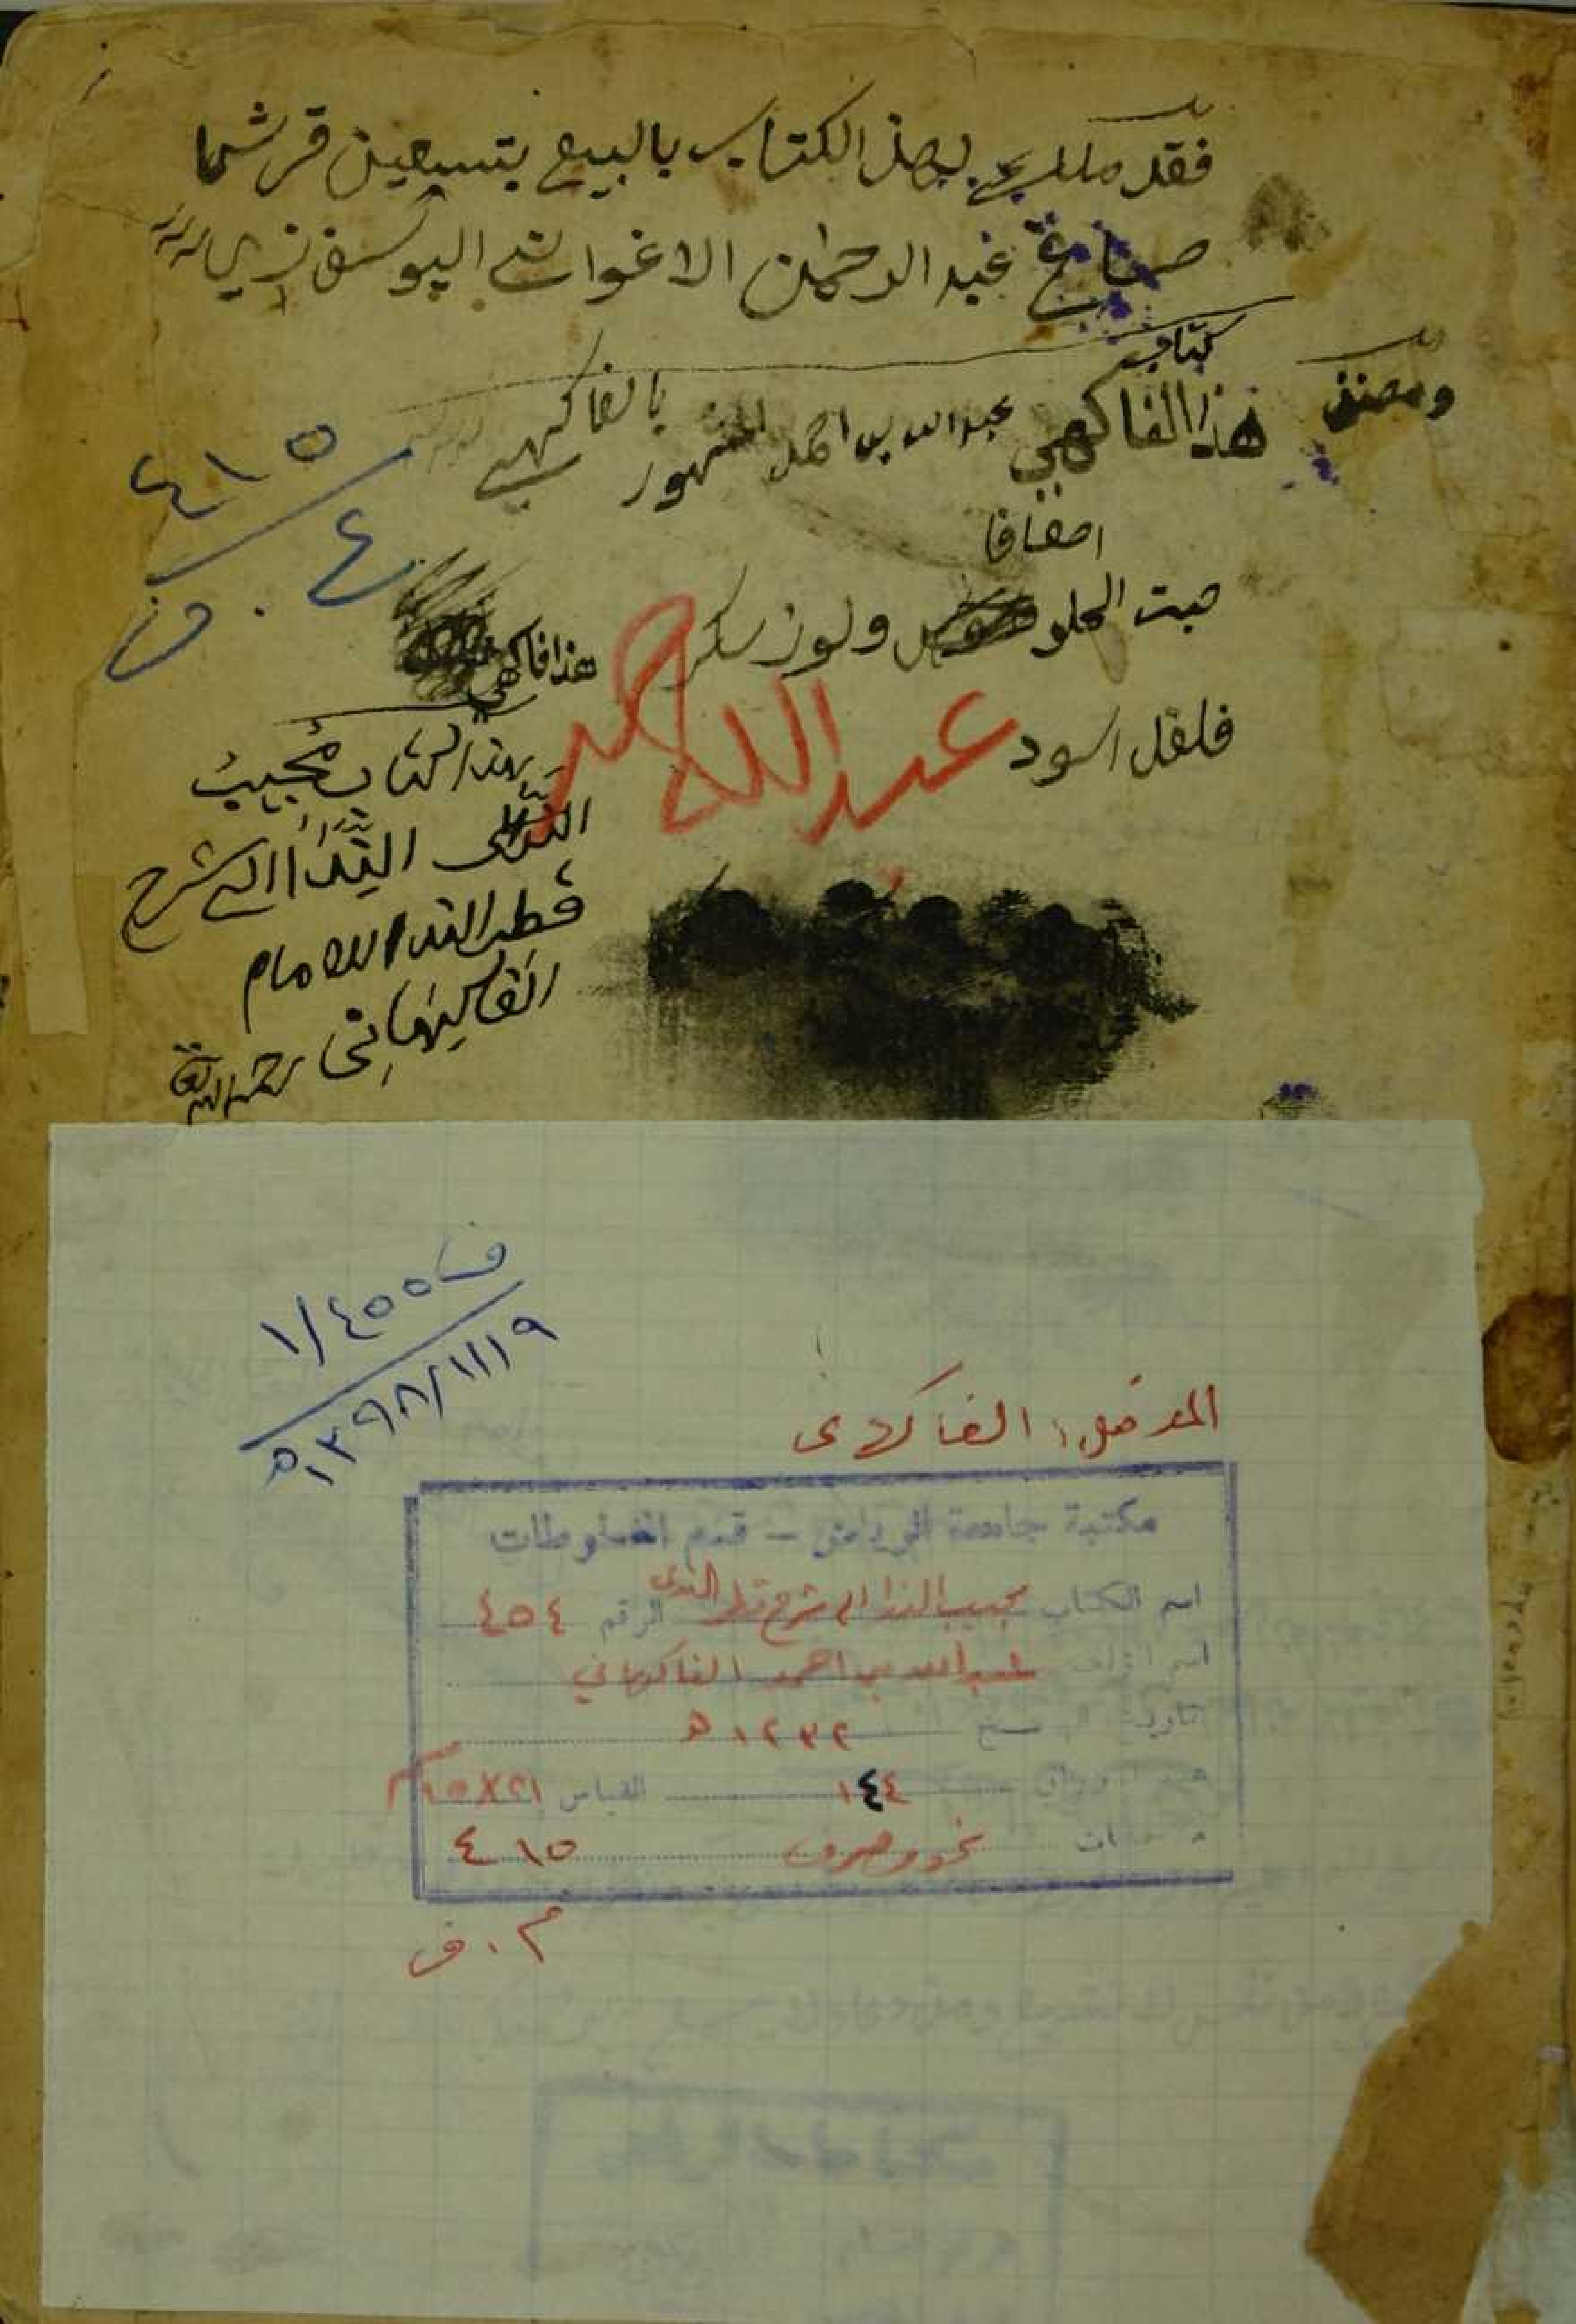 فقد ملك بهذ الكتاب بالبيع بتسعين قرشا
عبد الرحمن الاغواني اليوسف زي
كتاب
ومصنف هذا الفاكهي عبد الله بن احمد المشهور بالفاكهي
٤١٥
ف . ٤
اصفافا
حبت الحلو ولوز سكر
هذا فاكهي
فلفل اسود
عبد الله احمد
هذا الكتاب مُجيبُ
النِّدَا الى شرح
قطر الندا للامام
الفاكيهانى رحمه الله تعا
ف ١/٤٥٥
١٣٩٨/١١/١٩ه
المدخل: الفاكهى
مكتبة جامعة الرياض - قسم المخطوطات
اسم الكتاب مجيب الندا الى شرح قطر الندى الرقم ٤٥٤
اسم المؤلف عبد الله بن احمد الفاكهاني
تاريخ النسخ ١٢٣٢ ه
عدد الاوراق ١٤٤ القياس ٢١×١٥سم
نحو وصرف ٤١٥
م . ف